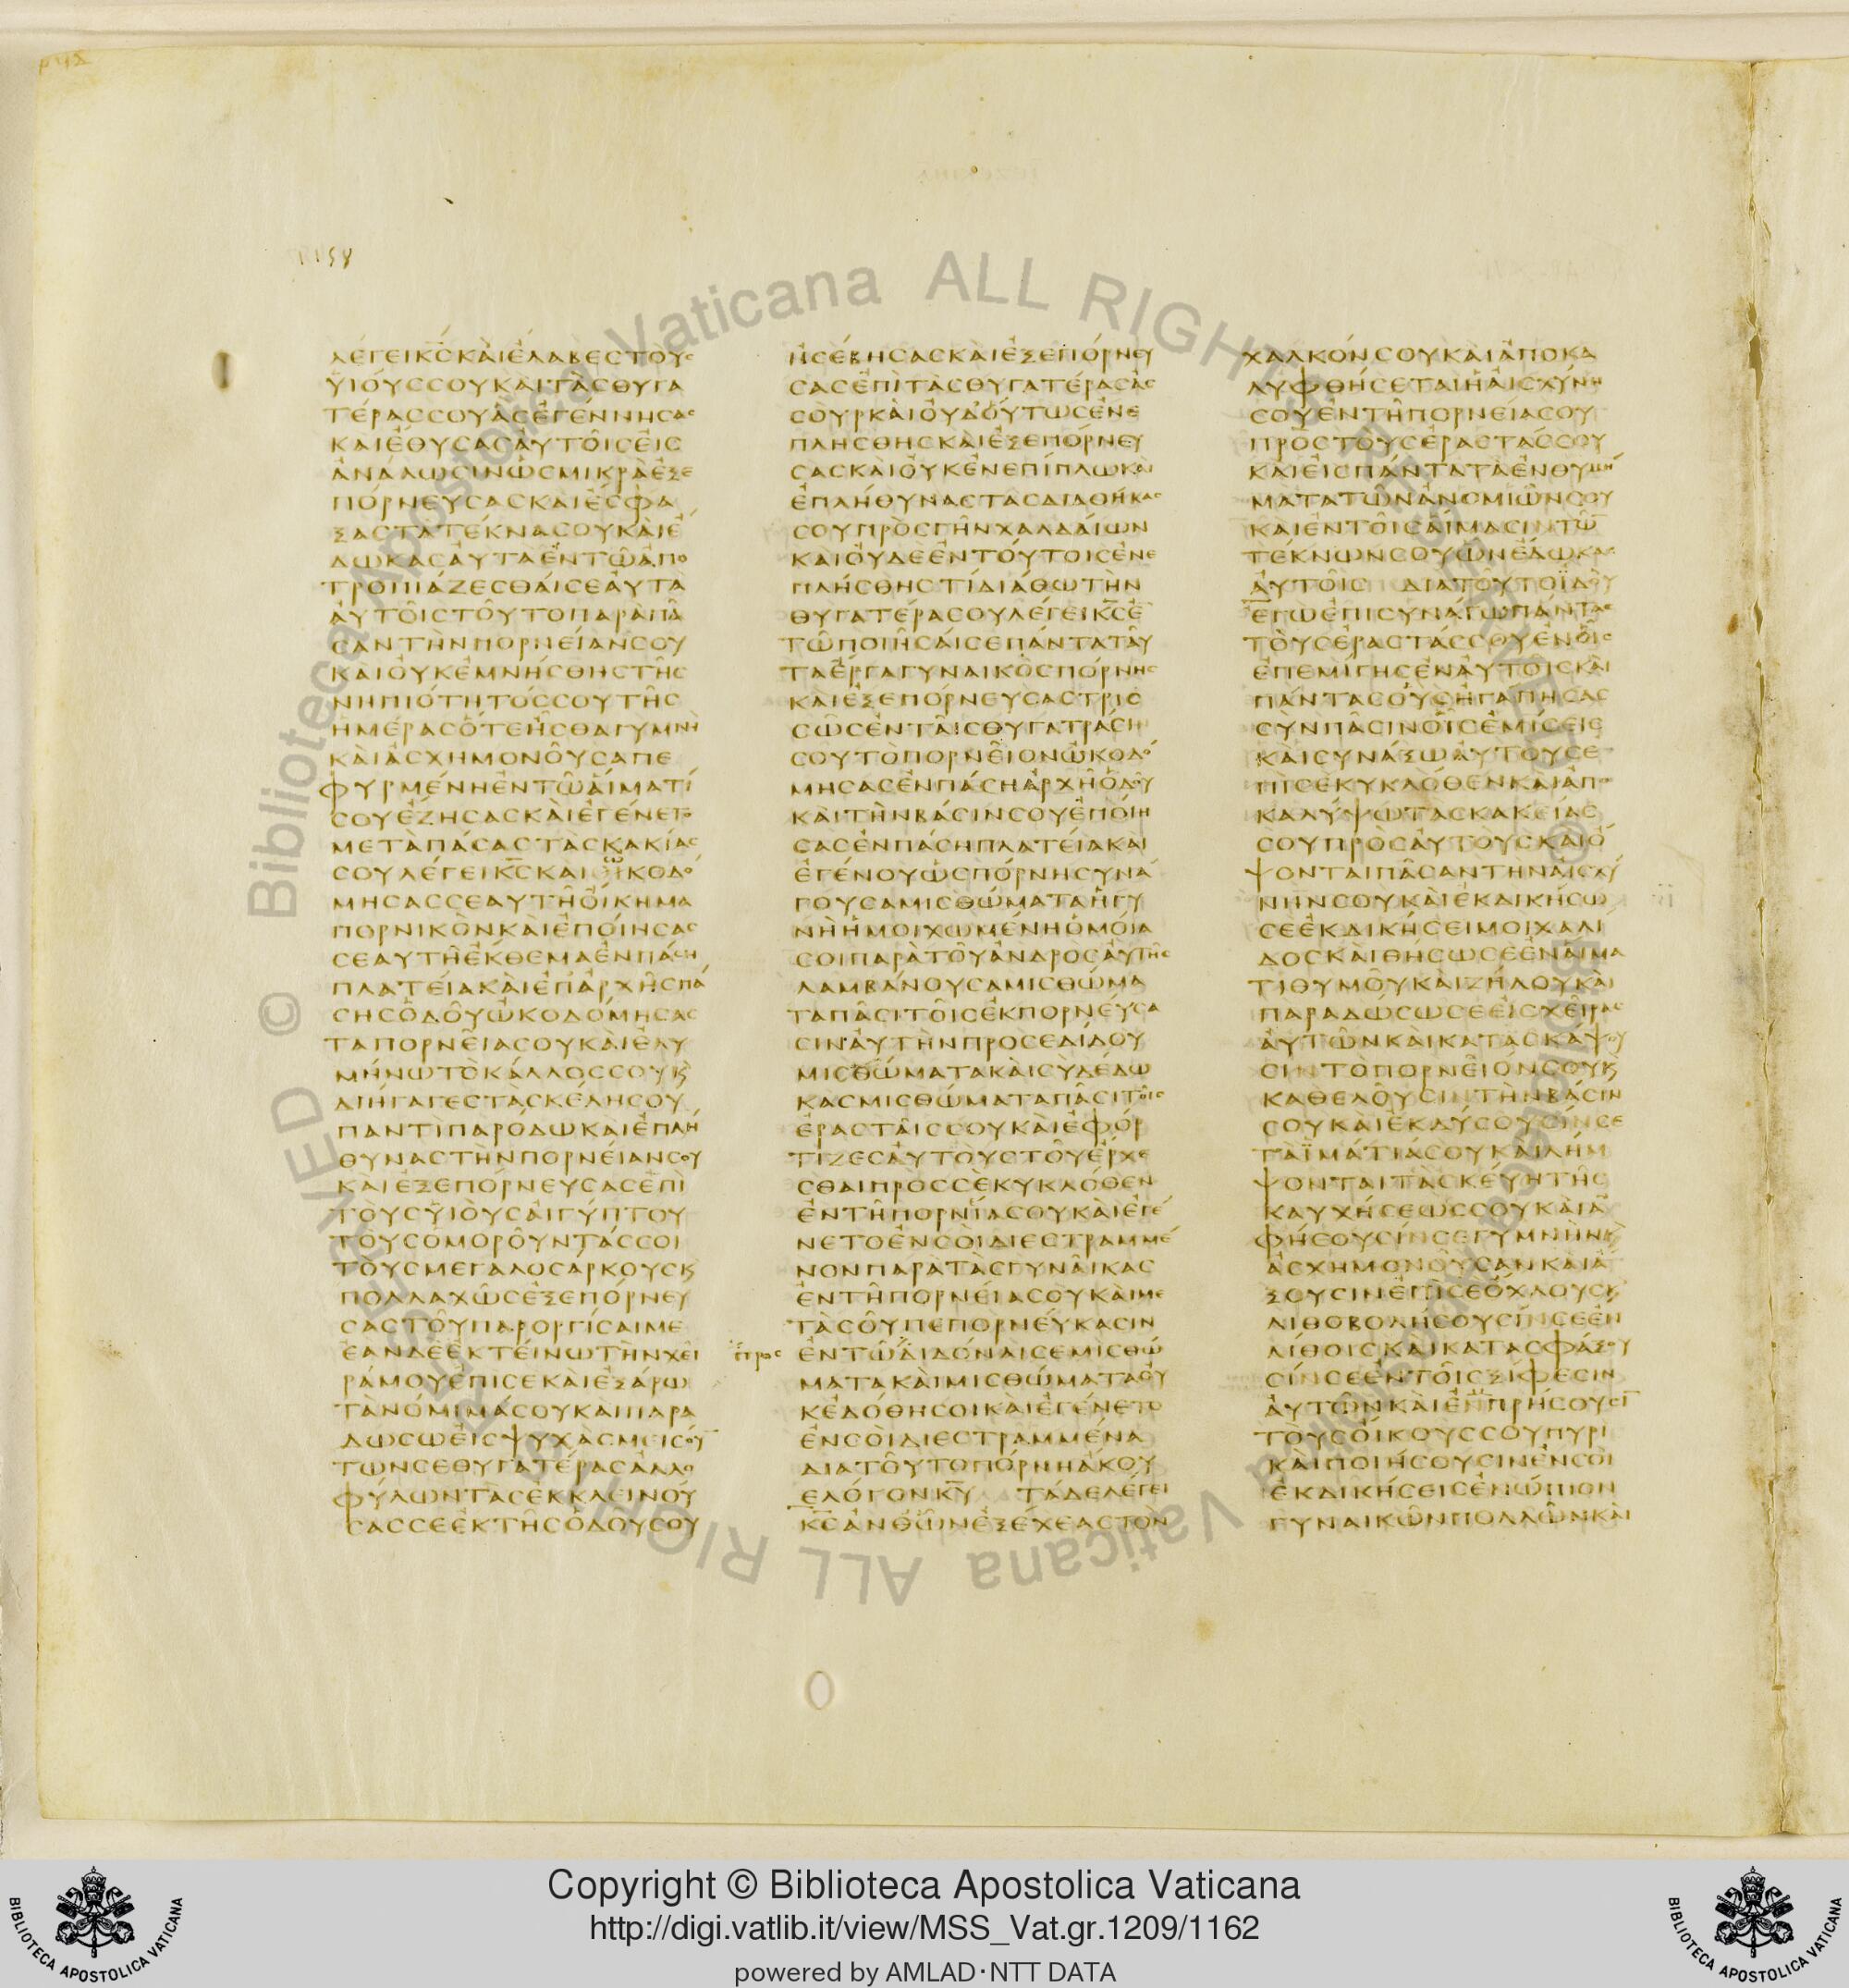 1158
ΛΕΓΕΙΚ̅Σ̅ΚΑΙΕΛΑΒΕΣΤΟΥΣ
ΥΙΟΥΣΣΟΥΚΑΙΤΑΣΘΥΓΑ
ΤΕΡΑΣΣΟΥΑΣΕΓΕΝΝΗΣΑΣ
ΚΑΙΕΘΥΣΑΣΑΥΤΟΙΣΕΙΣ
ΑΝΑΛΩΣΙΝΩΣΜΙΚΡΑΕΞΕ
ΠΟΡΝΕΥΣΑΣΚΑΙΕΣΦΑ
ΞΑΣΤΑΤΕΚΝΑΣΟΥΚΑΙΕ
ΔΩΚΑΣΑΥΤΑΕΝΤΩΑΠΟ
ΤΡΟΠΙΑΖΕΣΘΑΙΣΕΑΥΤΑ
ΑΥΤΟΙΣΤΟΥΤΟΠΑΡΑΠΑ
ΣΑΝΤΗΝΠΟΡΝΕΙΑΝΣΟΥ
ΚΑΙΟΥΚΕΜΝΗΣΘΗΣΤΗΣ
ΝΗΠΙΟΤΗΤΟΣΣΟΥΤΗΣ
ΗΜΕΡΑΣΟΤΕΗΣΘΑΓΥΜΝΗ
ΚΑΙΑΣΧΗΜΟΝΟΥΣΑΠΕ
ΦΥΡΜΕΝΗΕΝΤΩΑΙΜΑΤΙ
ΣΟΥΕΖΗΣΑΣΚΑΙΕΓΕΝΕΤΟ
ΜΕΤΑΠΑΣΑΣΤΑΣΚΑΚΙΑΣ
ΣΟΥΛΕΓΕΙΚ̅Σ̅ΚΑΙΟΙΚΟΔΟ
ΜΗΣΑΣΣΕΑΥΤΗΟΙΚΗΜΑ
ΠΟΡΝΙΚΟΝΚΑΙΕΠΟΙΗΣΑΣ
ΣΕΑΥΤΗΕΚΘΕΜΑΕΝΠΑΣΗ
ΠΛΑΤΕΙΑΚΑΙΕΠΑΡΧΗΣΠΑ
ΣΗΣΟΔΟΥΩΚΟΔΟΜΗΣΑΣ
ΤΑΠΟΡΝΕΙΑΣΟΥΚΑΙΕΛΥ
ΜΗΝΩΤΟΚΑΛΛΟΣΣΟΥΚϚ
ΔΙΗΓΑΓΕΣΤΑΣΚΕΛΗΣΟΥ
ΠΑΝΤΙΠΑΡΟΔΩΚΑΙΕΠΛΗ
ΘΥΝΑΣΤΗΝΠΟΡΝΕΙΑΝΣΟΥ
ΚΑΙΕΞΕΠΟΡΝΕΥΣΑΣΕΠΙ
ΤΟΥΣΥΙΟΥΣΑΙΓΥΠΤΟΥ
ΤΟΥΣΟΜΟΡΟΥΝΤΑΣΣΟΙ
ΤΟΥΣΜΕΓΑΛΟΣΑΡΚΟΥΣΚϚ
ΠΟΛΛΑΧΩΣΕΞΕΠΟΡΝΕΥ
ΣΑΣΤΟΥΠΑΡΟΡΓΙΣΑΙΜΕ
ΕΑΝΔΕΕΚΤΕΙΝΩΤΗΝΧΕΙ
ΡΑΜΟΥΕΠΙΣΕΚΑΙΕΞΑΡΩ
ΤΑΝΟΜΙΜΑΣΟΥΚΑΙΠΑΡΑ
ΔΩΣΩΕΙΣΨΥΧΑΣΜΕΙΣΟΥ̅
ΤΩΝΣΕΘΥΓΑΤΕΡΑΣΑΛΛΟ
ΦΥΛΩΝΤΑΣΕΚΚΛΕΙΝΟΥ
ΣΑΣΣΕΕΚΤΗΣΟΔΟΥΣΟΥ
ΗΣΕΒΗΣΑΣΚΑΙΕΞΕΠΟΡΝΕΥ
ΣΑΣΕΠΙΤΑΣΘΥΓΑΤΕΡΑΣΑΣ
ΣΟΥΡΚΑΙΟΥΔΟΥΤΩΣΕΝΕ
ΠΛΗΣΘΗΣΚΑΙΕΞΕΠΟΡΝΕΥ
ΣΑΣΚΑΙΟΥΚΕΝΕΠΙΠΛΩΚΑΙ
ΕΠΛΗΘΥΝΑΣΤΑΣΔΙΑΘΗΚΑΣ
ΣΟΥΠΡΟΣΓΗΝΧΑΛΔΑΙΩΝ
ΚΑΙΟΥΔΕΕΝΤΟΥΤΟΙΣΕΝΕ
ΠΛΗΣΘΗΣΤΙΔΙΑΘΩΤΗΝ
ΘΥΓΑΤΕΡΑΣΟΥΛΕΓΕΙΚ̅Σ̅Ε
ΤΩΠΟΙΗΣΑΙΣΕΠΑΝΤΑΤΑΥ
ΤΑΕΡΓΑΓΥΝΑΙΚΟΣΠΟΡΝΗΣ
ΚΑΙΕΞΕΠΟΡΝΕΥΣΑΣΤΡΙΣ
ΣΩΣΕΝΤΑΙΣΘΥΓΑΤΡΑΣΙ
ΣΟΥΤΟΠΟΡΝΕΙΟΝΩΚΟΔΟ
ΜΗΣΑΣΕΝΠΑΣΗΑΡΧΗΟΔΟΥ
ΚΑΙΤΗΝΒΑΣΙΝΣΟΥΕΠΟΙΗ
ΣΑΣΕΝΠΑΣΗΠΛΑΤΕΙΑΚΑΙ
ΕΓΕΝΟΥΩΣΠΟΡΝΗΣΥΝΑ
ΓΟΥΣΑΜΙΣΘΩΜΑΤΑΗΓΥ
ΝΗΗΜΟΙΧΩΜΕΝΗΟΜΟΙΑ
ΣΟΙΠΑΡΑΤΟΥΑΝΔΡΟΣΑΥΤΗΣ
ΛΑΜΒΑΝΟΥΣΑΜΙΣΘΩΜΑ
ΤΑΠΑΣΙΤΟΙΣΕΚΠΟΡΝΕΥΣΑ
ΣΙΝΑΥΤΗΝΠΡΟΣΕΔΙΔΟΥ
ΜΙΣΘΩΜΑΤΑΚΑΙΣΥΔΕΔΩ
ΚΑΣΜΙΣΘΩΜΑΤΑΠΑΣΙΤΟΙΣ
ΕΡΑΣΤΑΙΣΣΟΥΚΑΙΕΦΟΡ
ΤΙΖΕΣΑΥΤΟΥΣΤΟΥΕΡΧΕ
ΣΘΑΙΠΡΟΣΣΕΚΥΚΛΟΘΕΝ
ΕΝΤΗΠΟΡΝΙΑΣΟΥΚΑΙΕΓΕ
ΝΕΤΟΕΝΣΟΙΔΙΕΣΤΡΑΜΜΕ
ΝΟΝΠΑΡΑΤΑΣΓΥΝΑΙΚΑΣ
ΕΝΤΗΠΟΡΝΕΙΑΣΟΥΚΑΙΜΕ
ΤΑΣΟΥΠΕΠΟΡΝΕΥΚΑΣΙΝ
ΕΝΤΩΔΙΔΟΝΑΙΣΕΜΙΣΘΩ
ΜΑΤΑΚΑΙΜΙΣΘΩΜΑΤΑΟΥ
ΚΕΔΟΘΗΣΟΙΚΑΙΕΓΕΝΕΤΟ
ΕΝΣΟΙΔΙΕΣΤΡΑΜΜΕΝΑ
ΔΙΑΤΟΥΤΟΠΟΡΝΗΑΚΟΥ
ΕΛΟΓΟΝΚ̅Υ̅ ΤΑΔΕΛΕΓΕΙ
Κ̅Σ̅ΑΝΘΩΝΕΞΕΧΕΑΣΤΟΝ
ΧΑΛΚΟΝΣΟΥΚΑΙΑΠΟΚΑ
ΛΥΦΘΗΣΕΤΑΙΗΑΙΣΧΥΝΗ
ΣΟΥΕΝΤΗΠΟΡΝΕΙΑΣΟΥ
ΠΡΟΣΤΟΥΣΕΡΑΣΤΑΣΣΟΥ
ΚΑΙΕΙΣΠΑΝΤΑΤΑΕΝΘΥΜΗ
ΜΑΤΑΤΩΝΑΝΟΜΙΩΝΣΟΥ
ΚΑΙΕΝΤΟΙΣΑΙΜΑΣΙΝΤΩ̅
ΤΕΚΝΩΝΣΟΥΩΝΕΔΩΚΑΣ
ΑΥΤΟΙΣ ΔΙΑΤΟΥΤΟΙΔΟΥ
ΕΓΩΕΠΙΣΥΝΑΓΩΠΑΝΤΑΣ
ΤΟΥΣΕΡΑΣΤΑΣΣΟΥΕΝΟΙΣ
ΕΠΕΜΙΓΗΣΕΝΑΥΤΟΙΣΚΑΙ
ΠΑΝΤΑΣΟΥΣΗΓΑΠΗΣΑΣ
ΣΥΝΠΑΣΙΝΟΙΣΕΜΙΣΕΙΣ
ΚΑΙΣΥΝΑΞΩΑΥΤΟΥΣΕ
ΠΙΣΕΚΥΚΛΟΘΕΝΚΑΙΑΠΟ
ΚΑΛΥΨΩΤΑΣΚΑΚΕΙΑΣ
ΣΟΥΠΡΟΣΑΥΤΟΥΣΚΑΙΟ
ΨΟΝΤΑΙΠΑΣΑΝΤΗΝΑΙΣΧΥ
ΝΗΝΣΟΥΚΑΙΕΚΔΙΚΗΣΩ
ΣΕΕΚΔΙΚΗΣΕΙΜΟΙΧΑΛΙ
ΔΟΣΚΑΙΘΗΣΩΣΕΕΝΑΙΜΑ
ΤΙΘΥΜΟΥΚΑΙΖΗΛΟΥΚΑΙ
ΠΑΡΑΔΩΣΩΣΕΕΙΣΧΕΙΡΑΣ
ΑΥΤΩΝΚΑΙΚΑΤΑΣΚΑΨΟΥ
ΣΙΝΤΟΠΟΡΝΕΙΟΝΣΟΥΚϚ
ΚΑΘΕΛΟΥΣΙΝΤΗΝΒΑΣΙΝ
ΣΟΥΚΑΙΕΚΔΥΣΟΥΣΙΝΣΕ
ΤΑΙΜΑΤΙΑΣΟΥΚΑΙΛΗΜ
ΨΟΝΤΑΙΤΑΣΚΕΥΗΤΗΣ
ΚΑΥΧΗΣΕΩΣΣΟΥΚΑΙΑ
ΦΗΣΟΥΣΙΝΣΕΓΥΜΝΗΝΚϚ
ΑΣΧΗΜΟΝΟΥΣΑΝΚΑΙΑ
ΞΟΥΣΙΝΕΠΙΣΕΟΧΛΟΥΣΚϚ
ΛΙΘΟΒΟΛΗΣΟΥΣΙΝΣΕΕΝ
ΛΙΘΟΙΣΚΑΙΚΑΤΑΣΦΑΞΟΥ
ΣΙΝΣΕΕΝΤΟΙΣΞΙΦΕΣΙΝ
ΑΥΤΩΝΚΑΙΕΝΠΡΗΣΟΥΣΙ̅
ΤΟΥΣΟΙΚΟΥΣΣΟΥΠΥΡΙ
ΚΑΙΠΟΙΗΣΟΥΣΙΝΕΝΣΟΙ
ΕΚΔΙΚΗΣΕΙΣΕΝΩΠΙΟΝ
ΓΥΝΑΙΚΩΝΠΟΛΛΩΝΚΑΙ
Copyright © Biblioteca Apostolica Vaticana
http://digi.vatlib.it/view/MSS_Vat.gr.1209/1162
powered by AMLAD·NTT DATA
BIBLIOTECA APOSTOLICA VATICANA
BIBLIOTECA APOSTOLICA VATICANA
© Biblioteca Apostolica Vaticana ALL RIGHTS RESERVED